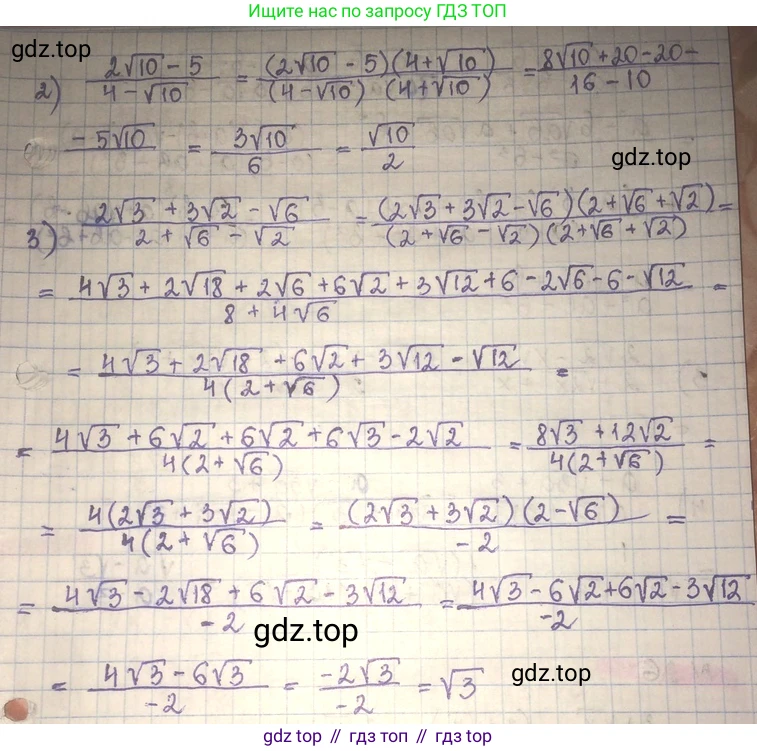 Ищите нас по запросу ГДЗ ТОП
gdz.top
2) (2√10 - 5)/(4 - √10) = ((2√10 - 5)(4+√10))/((4-√10)(4+√10)) = (8√10 + 20 - 20 -)/(16 - 10)
(- 5√10)/ = (3√10)/6 = √10/2
gdz.top
3) (2√3 + 3√2 - √6)/(2 + √6 - √2) = ((2√3 + 3√2 - √6)(2+√6 + √2))/((2+√6 - √2)(2+√6 + √2)) =
= (4√3 + 2√18 + 2√6 + 6√2 + 3√12 + 6 - 2√6 - 6 - √12)/(8 + 4√6) =
= (4√3 + 2√18 + 6√2 + 3√12 - √12)/(4(2+√6)) =
= (4√3 + 6√2 + 6√2 + 6√3 - 2√2)/(4(2+√6)) = (8√3 + 12√2)/(4(2+√6)) =
= (4(2√3 + 3√2))/(4(2+√6)) = ((2√3 + 3√2)(2-√6))/(-2) =
= (4√3 - 2√18 + 6√2 - 3√12)/(-2) = (4√3 - 6√2 + 6√2 - 3√12)/(-2)
gdz.top
= (4√3 - 6√3)/(-2) = (-2√3)/(-2) = √3
gdz.top
gdz.top // гдз топ // gdz.top